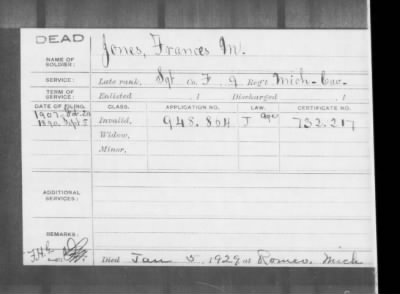 DEAD
NAME OF SOLDIER: Jones, Frances M.
SERVICE: Late rank, Sgt Co. F, 9 Reg't Mich. Cav.
TERM OF SERVICE: Enlisted , 1 Discharged , 1
DATE OF FILING. CLASS. APPLICATION NO. LAW. CERTIFICATE NO.
1907
1890 Sept 5 Invalid, 948.804 J 732.217
Widow,
Minor,
ADDITIONAL SERVICES:
REMARKS:
Died Jan 5, 1929 at Romeo, Mich